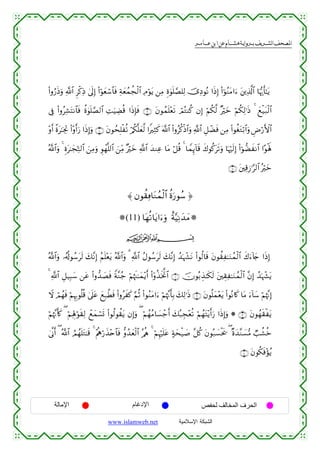 المصحف الشريف برواية هشام عن ابن عامر
يَٰٓأَيُّهَا ٱلَّذِينَ ءَامَنُوٓاْ إِذَا نُودِيَ لِلصَّلَوٰةِ مِن يَوْمِ ٱلْجُمُعَةِ فَٱسْعَوْاْ إِلَىٰ ذِكْرِ ٱللَّهِ وَذَرُواْ
ٱلْبَيْعَ ۚ ذَٰلِكُمْ خَيْرٌ لَّكُمْ إِن كُنتُمْ تَعْلَمُونَ ۝ فَإِذَا قُضِيَتِ ٱلصَّلَوٰةُ فَٱنتَشِرُواْ فِي
ٱلْأَرْضِ وَٱبْتَغُواْ مِن فَضْلِ ٱللَّهِ وَٱذْكُرُواْ ٱللَّهَ كَثِيرًا لَّعَلَّكُمْ تُفْلِحُونَ ۝ وَإِذَا رَأَوْاْ تِجَٰرَةً أَوْ
لَهْوًا ٱنفَضُّوٓاْ إِلَيْهَا وَتَرَكُوكَ قَآئِمًا ۚ قُلْ مَا عِندَ ٱللَّهِ خَيْرٌ مِّنَ ٱللَّهْوِ وَمِنَ ٱلتِّجَٰرَةِ ۚ وَٱللَّهُ
خَيْرُ ٱلرَّٰزِقِينَ ۝
﴿ سُورَةُ ٱلْمُنَٰفِقُونَ ﴾
*مَدَنِيَّةٌ وَءَايَاتُهَا (11)*
بِسْمِ ٱللَّهِ ٱلرَّحْمَٰنِ ٱلرَّحِيمِ
إِذَا جَآءَكَ ٱلْمُنَٰفِقُونَ قَالُواْ نَشْهَدُ إِنَّكَ لَرَسُولُ ٱللَّهِ ۗ وَٱللَّهُ يَعْلَمُ إِنَّكَ لَرَسُولُهُۥ وَٱللَّهُ
يَشْهَدُ إِنَّ ٱلْمُنَٰفِقِينَ لَكَٰذِبُونَ ۝ ٱتَّخَذُوٓاْ أَيْمَٰنَهُمْ جُنَّةً فَصَدُّواْ عَن سَبِيلِ ٱللَّهِ ۚ
إِنَّهُمْ سَآءَ مَا كَانُواْ يَعْمَلُونَ ۝ ذَٰلِكَ بِأَنَّهُمْ ءَامَنُواْ ثُمَّ كَفَرُواْ فَطُبِعَ عَلَىٰ قُلُوبِهِمْ فَهُمْ لَا
يَفْقَهُونَ ۝ * وَإِذَا رَأَيْتَهُمْ تُعْجِبُكَ أَجْسَامُهُمْ ۖ وَإِن يَقُولُواْ تَسْمَعْ لِقَوْلِهِمْ ۖ كَأَنَّهُمْ
خُشُبٌ مُّسَنَّدَةٌ ۖ يَحْسَبُونَ كُلَّ صَيْحَةٍ عَلَيْهِمْ ۚ هُمُ ٱلْعَدُوُّ فَٱحْذَرْهُمْ ۚ قَٰتَلَهُمُ ٱللَّهُ ۖ أَنَّىٰ
يُؤْفَكُونَ ۝
الحرف المخالف لحفص الإدغام الإمالة
الشبكة الإسلامية www.islamweb.net